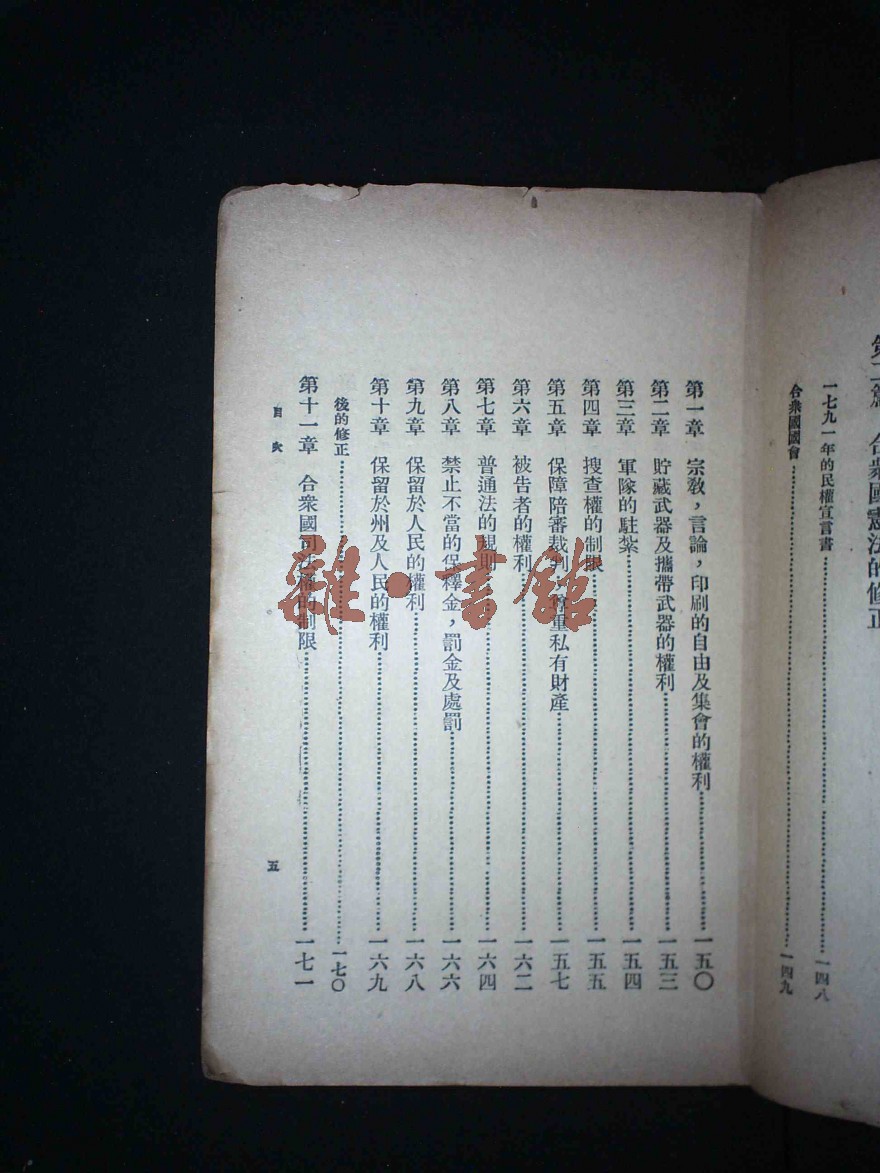 合衆國憲法的修正
一七九一年的民權宣言書……一四八
合衆國國會……一四九
第一章 宗敎，言論，印刷的自由及集會的權利……一五〇
第二章 貯藏武器及攜帶武器的權利……一五三
第三章 軍隊的駐紮……一五四
第四章 搜查權的制限……一五五
第五章 保障陪審裁判 尊重私有財產……一五七
第六章 被告者的權利……一六二
第七章 普通法的規則……一六四
第八章 禁止不當的保釋金，罰金及處罰……一六六
第九章 保留於人民的權利……一六八
第十章 保留於州及人民的權利……一六九
後的修正……一七〇
第十一章 合衆國司法權的制限……一七一
目次
五
雜·書館